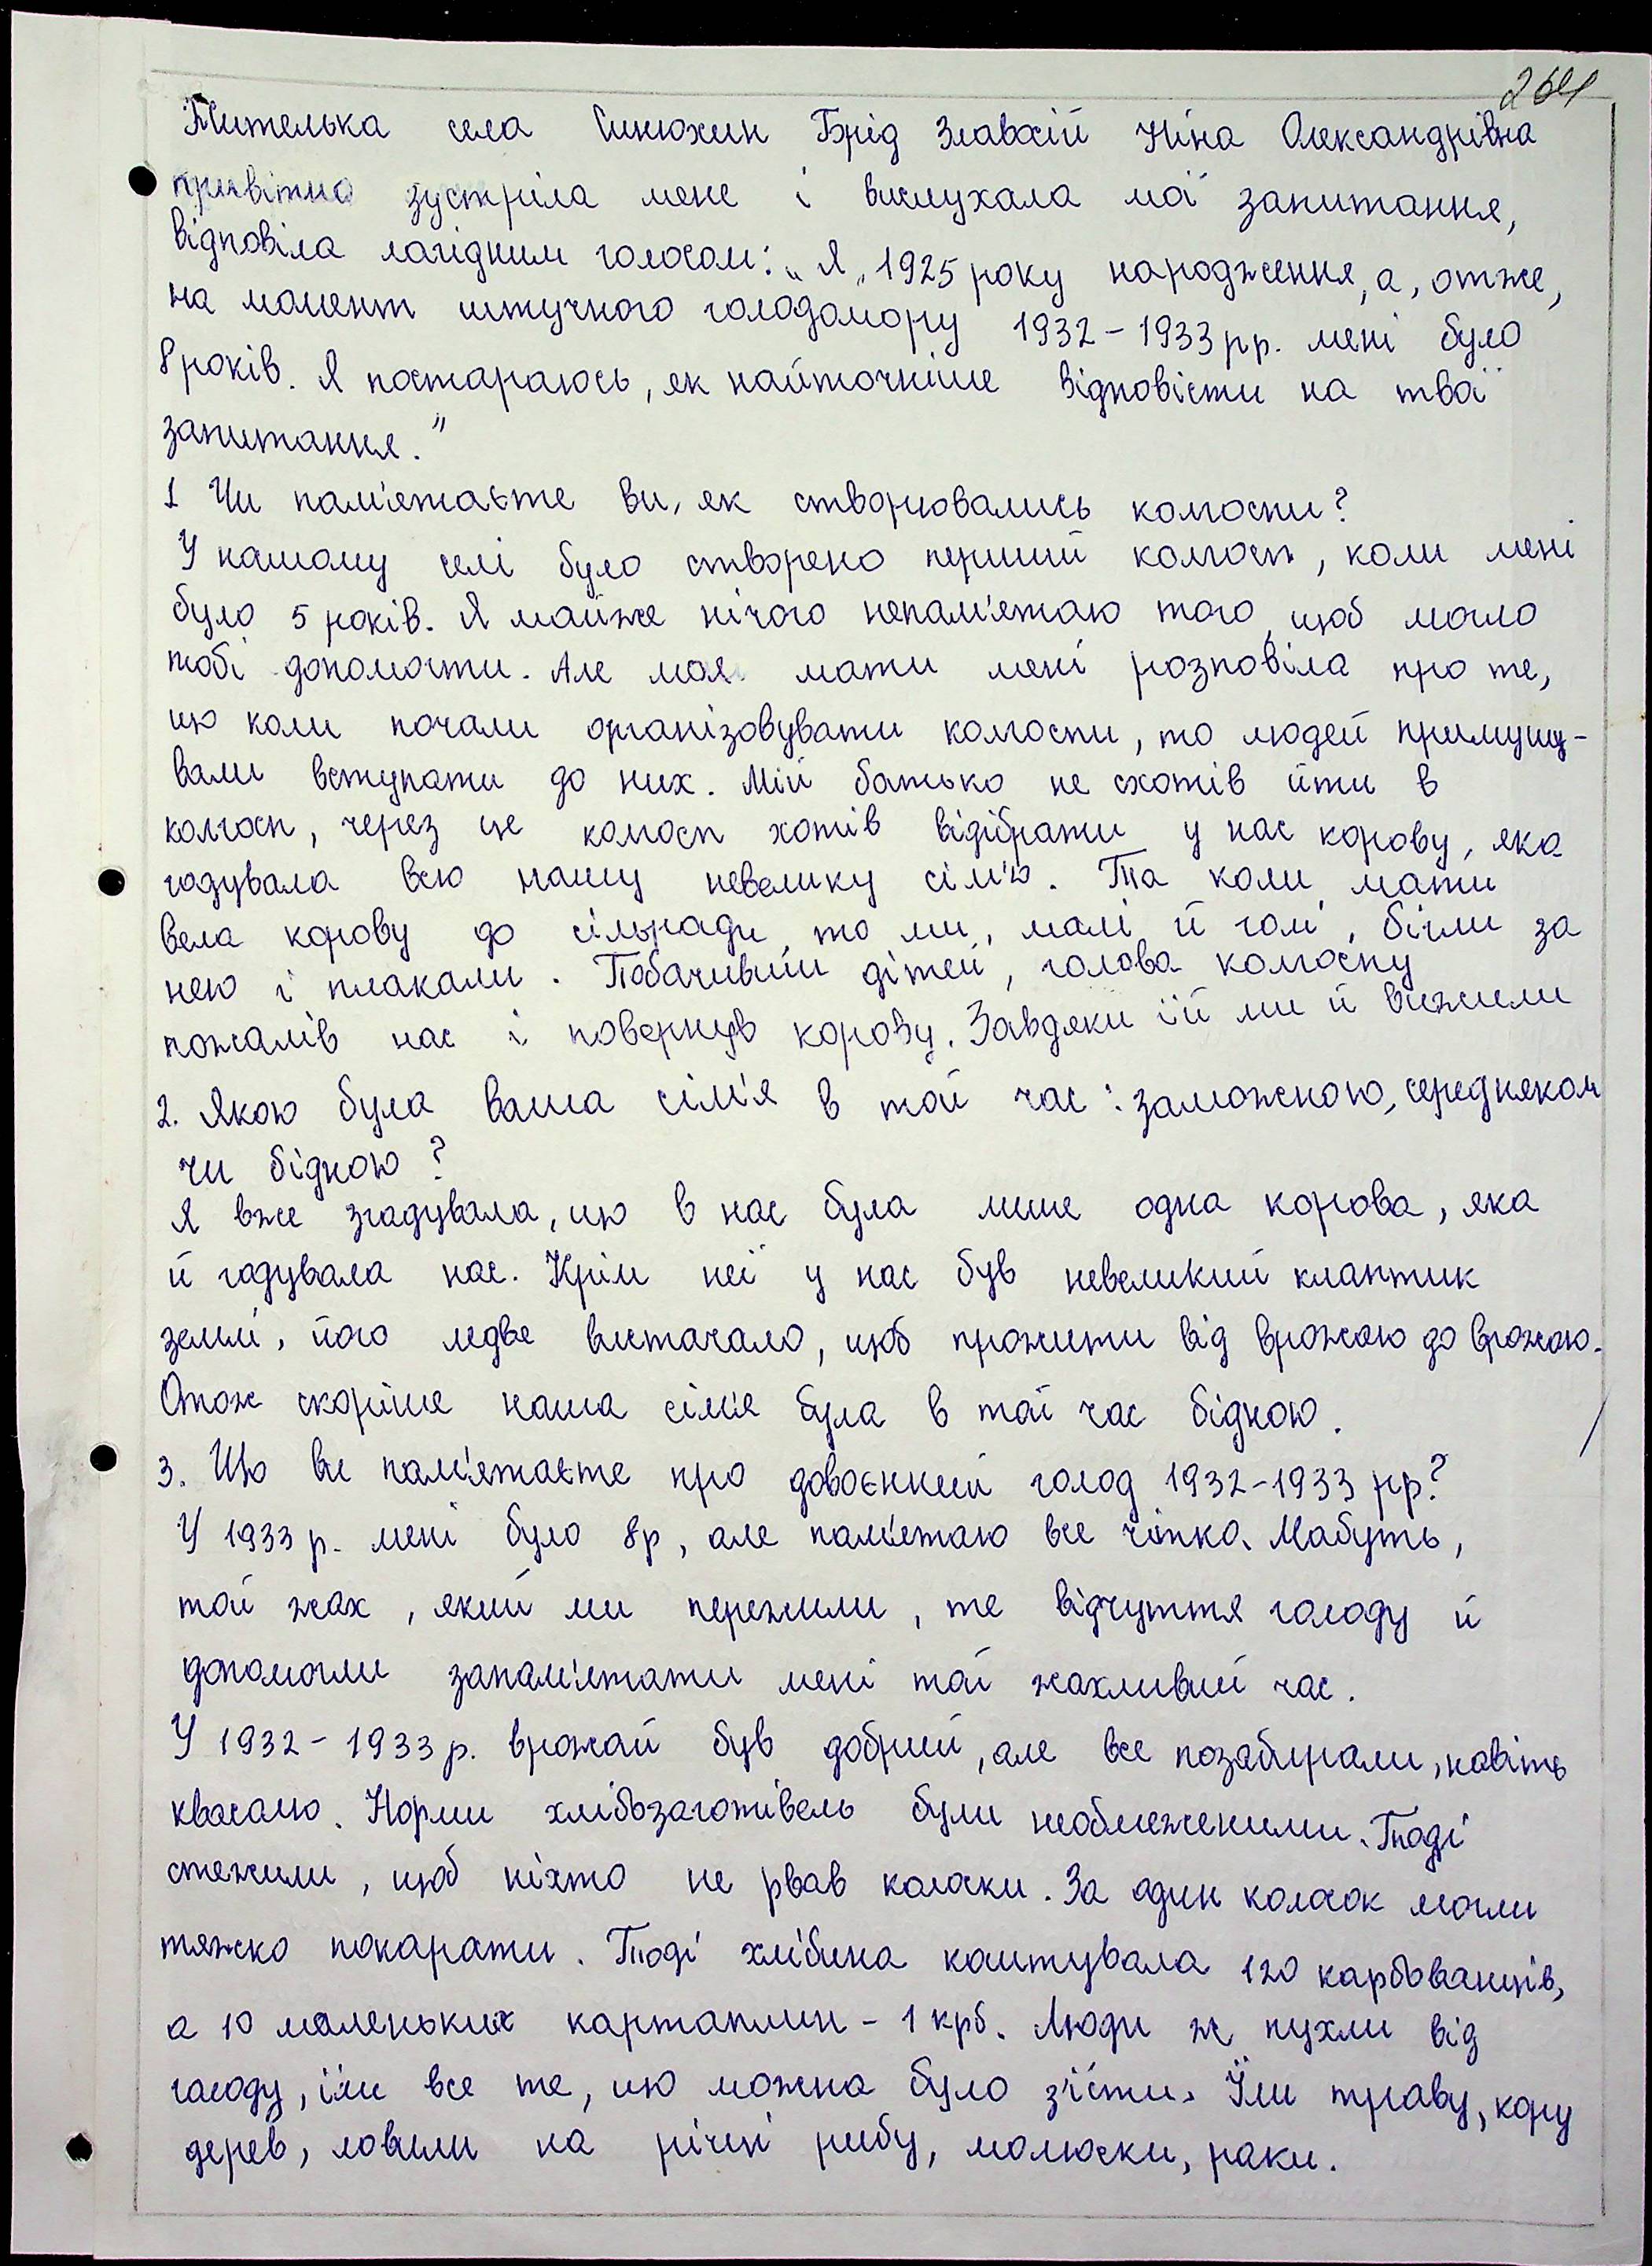 264
Жителька села Синюхин Брід Злавхій Ніна Олександрівна
привітно зустріла мене і вислухала мої запитання,
відповіла лагідним голосом: „Я 1925 року народження, а, отже,
на момент штучного голодомору 1932-1933 рр. мені було
8 років. Я постараюсь, як найточніше відповісти на твої
запитання."
1 Чи пам'ятаєте ви, як створювались колгоспи?
У нашому селі було створено перший колгосп, коли мені
було 5 років. Я майже нічого непам'ятаю того, щоб могло
тобі допомогти. Але моя мати мені розповіла про те,
що коли почали організовувати колгоспи, то людей примушу-
вали вступати до них. Мій батько не схотів йти в
колгосп, через це колгосп хотів відібрати у нас корову, яка
годувала всю нашу невелику сім'ю. Та коли мати
вела корову до сільради, то ми, малі й голі, бігли за
нею і плакали. Побачивши дітей, голова колгоспу
пожалів нас і повернув корову. Завдяки їй ми й вижили
2. Якою була ваша сім'я в той час: заможною, середняком
чи бідною?
Я вже згадувала, що в нас була лише одна корова, яка
й годувала нас. Крім неї у нас був невеликий клаптик
землі, його ледве вистачало, щоб прожити від врожаю до врожаю.
Отож скоріше наша сім'я була в той час бідною.
3. Що ви пам'ятаєте про довоєнний голод 1932-1933 рр?
У 1933 р. мені було 8р, але пам'ятаю все чітко. Мабуть,
той жах, який ми пережили, те відчуття голоду й
допомогли запам'ятати мені той жахливий час.
У 1932-1933 р. врожай був добрий, але все позабирали, навіть
квасолю. Норми хлібозаготівель були необмеженими. Тоді
стежили, щоб ніхто не рвав колоски. За один колосок могли
тяжко покарати. Тоді хлібина коштувала 120 карбованців,
а 10 маленьких картоплин - 1 крб. Люди ж пухли від
голоду, їли все те, що можна було з'їсти. Їли траву, кору
дерев, ловили на річці рибу, молюски, раки.